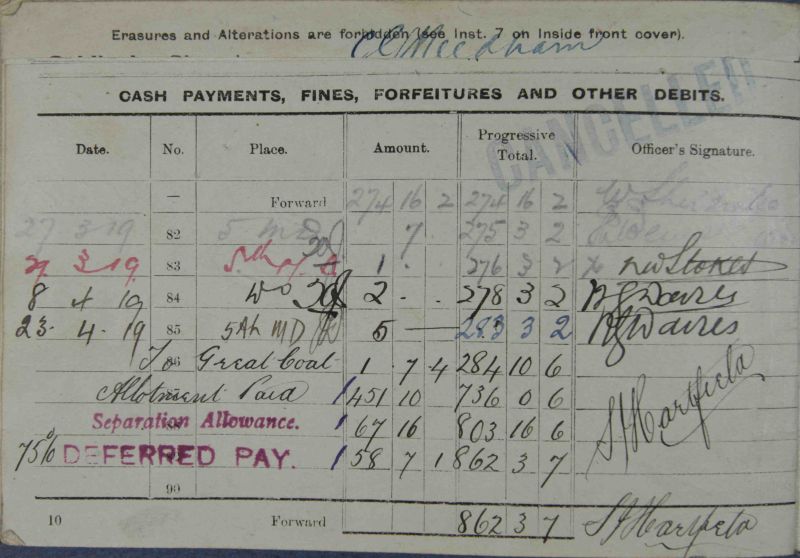 Erasures and Alterations are forbidden (see Inst. 7 on Inside front cover).
CANCELLED
CASH PAYMENTS, FINES, FORFEITURES AND OTHER DEBITS.
Date. No. Place. Amount. Progressive Total. Officer's Signature.
— Forward 274 16 2 274 16 2
27 3 19 82 5 MD 7 275 3 2
27 3 19 83 5th M.D. 1 . . 276 3 2 NW Stokes
8 4 19 84 WO 2 . . 278 3 2 Davies
23. 4. 19 85 5th MD 5 — 283 3 2 Davies
86 To Great Coat 1 7 4 284 10 6
Allotment Paid 451 10 736 0 6
Separation Allowance. 67 16 803 16 6 Hartfield
75% DEFERRED PAY. 58 7 1 862 3 7
90
10 Forward 862 3 7 Hartfield